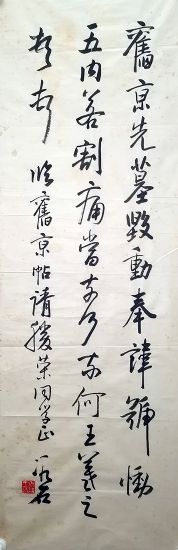 舊京先墓毀動奉諱號慟
五內若割痛當奈何奈何王羲之
頓首 臨舊京帖請勝榮同學正